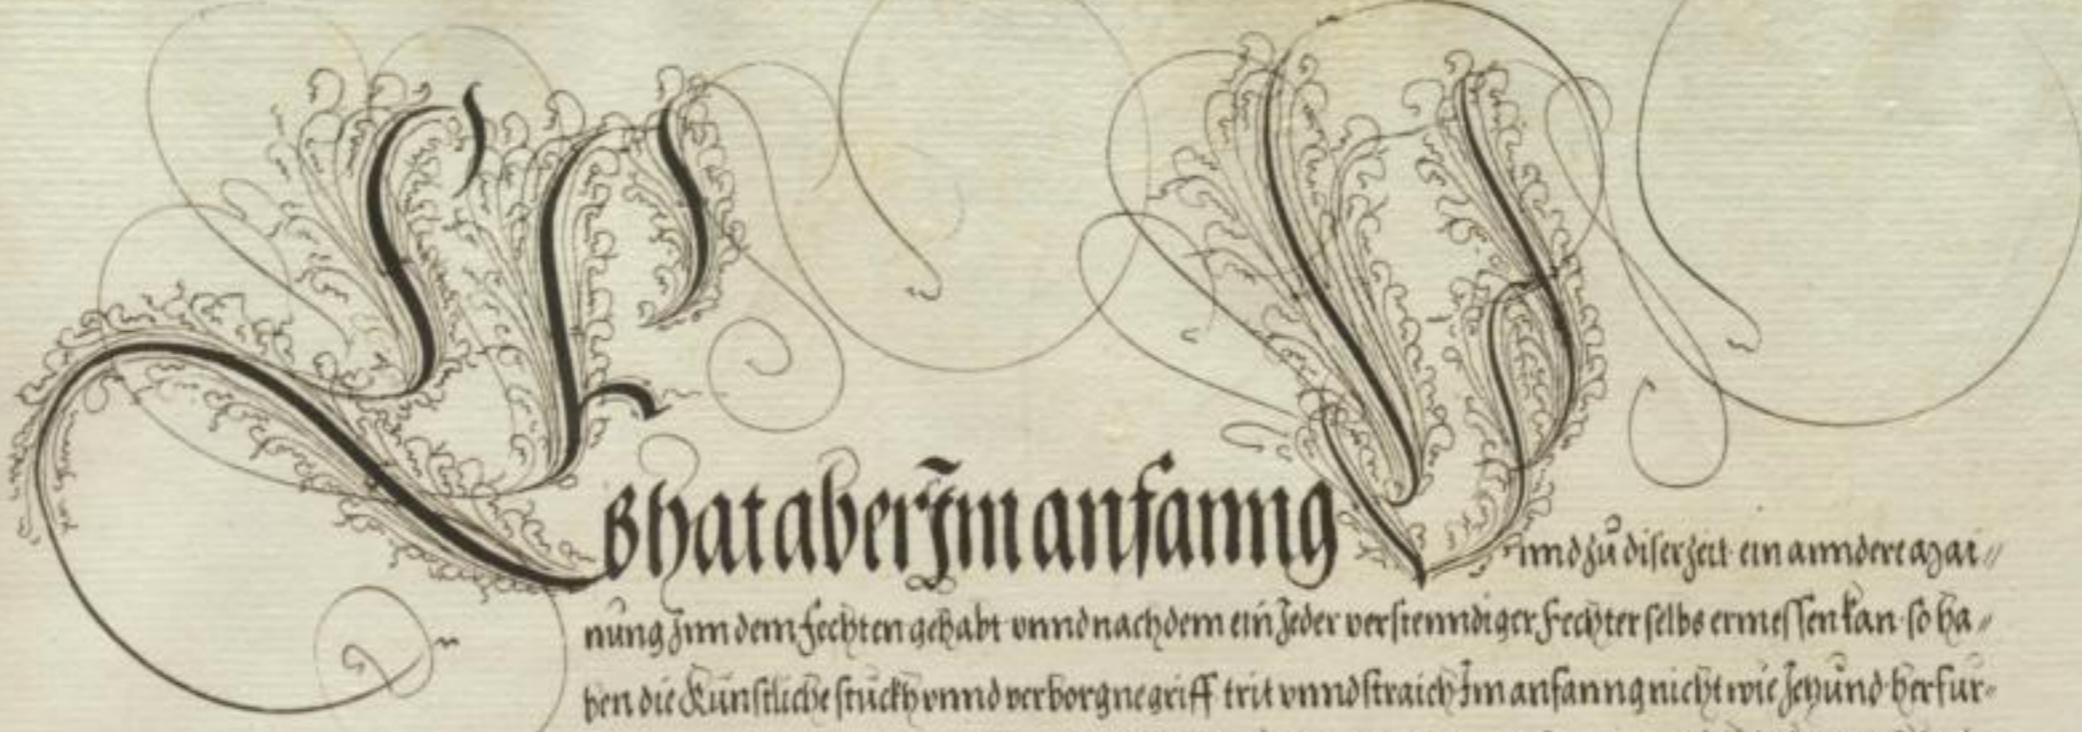 Es hat aber Im anfanng Vnnd zů diser zeit ein anndere Mai⸗
nung Inn dem fechten gehabt vnnd nach dem ein Jeder verstenndiger Fechter selbs ermessen kan so ha⸗
ben die Kunstliche stuckh vnnd verborgne griff trit vnnd straich Im anfanng nicht wie Jetzund herfur⸗